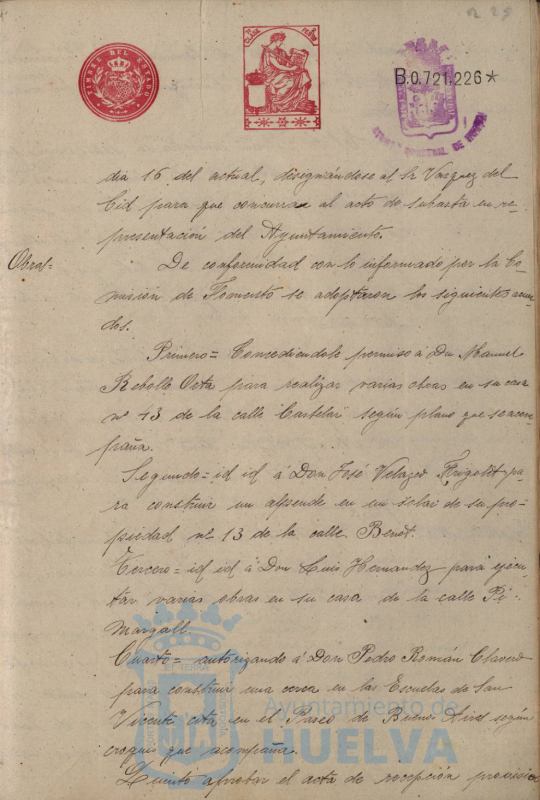 TIMBRE DEL ESTADO
CLASE
B.0.721.226*
dia 16 del actual, designándose al Sr Vazquez del
Cid para que concurra al acto de subasta en re-
presentación del Ayuntamiento.
Obras=
De conformidad con lo informado por la Co-
misión de Fomento se adoptaron los siguientes acuer-
dos.
Primero= Concediendole permiso á Don Manuel
Rebollo Orta para realizar varias obras en su casa
nº 13 de la calle Castelar según plano que se acom-
paña.
Segundo= id id á Don José Velazco pa-
ra construir un alpende en un solar de su pro-
piedad nº 13 de la calle Benot.
Tercero= id id á Don Luis Hernandez para ejecu-
tar varias obras en su casa de la calle Pí
Margall.
Cuarto= autorizando á Don Pedro Román Clavero
para construir una cerca en las Escuelas de San
Vicente cita en el Paseo de Buenos Aires según
croquis que acompaña.
Quinto aprobar el acta de recepción provisio
Ayuntamiento de
HUELVA